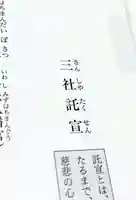 託宣とは、
たるまで、
慈悲の心
三社託宣
さんしゃたくせん
ちまんだいぼさつ
いわしみずはちまんぐう